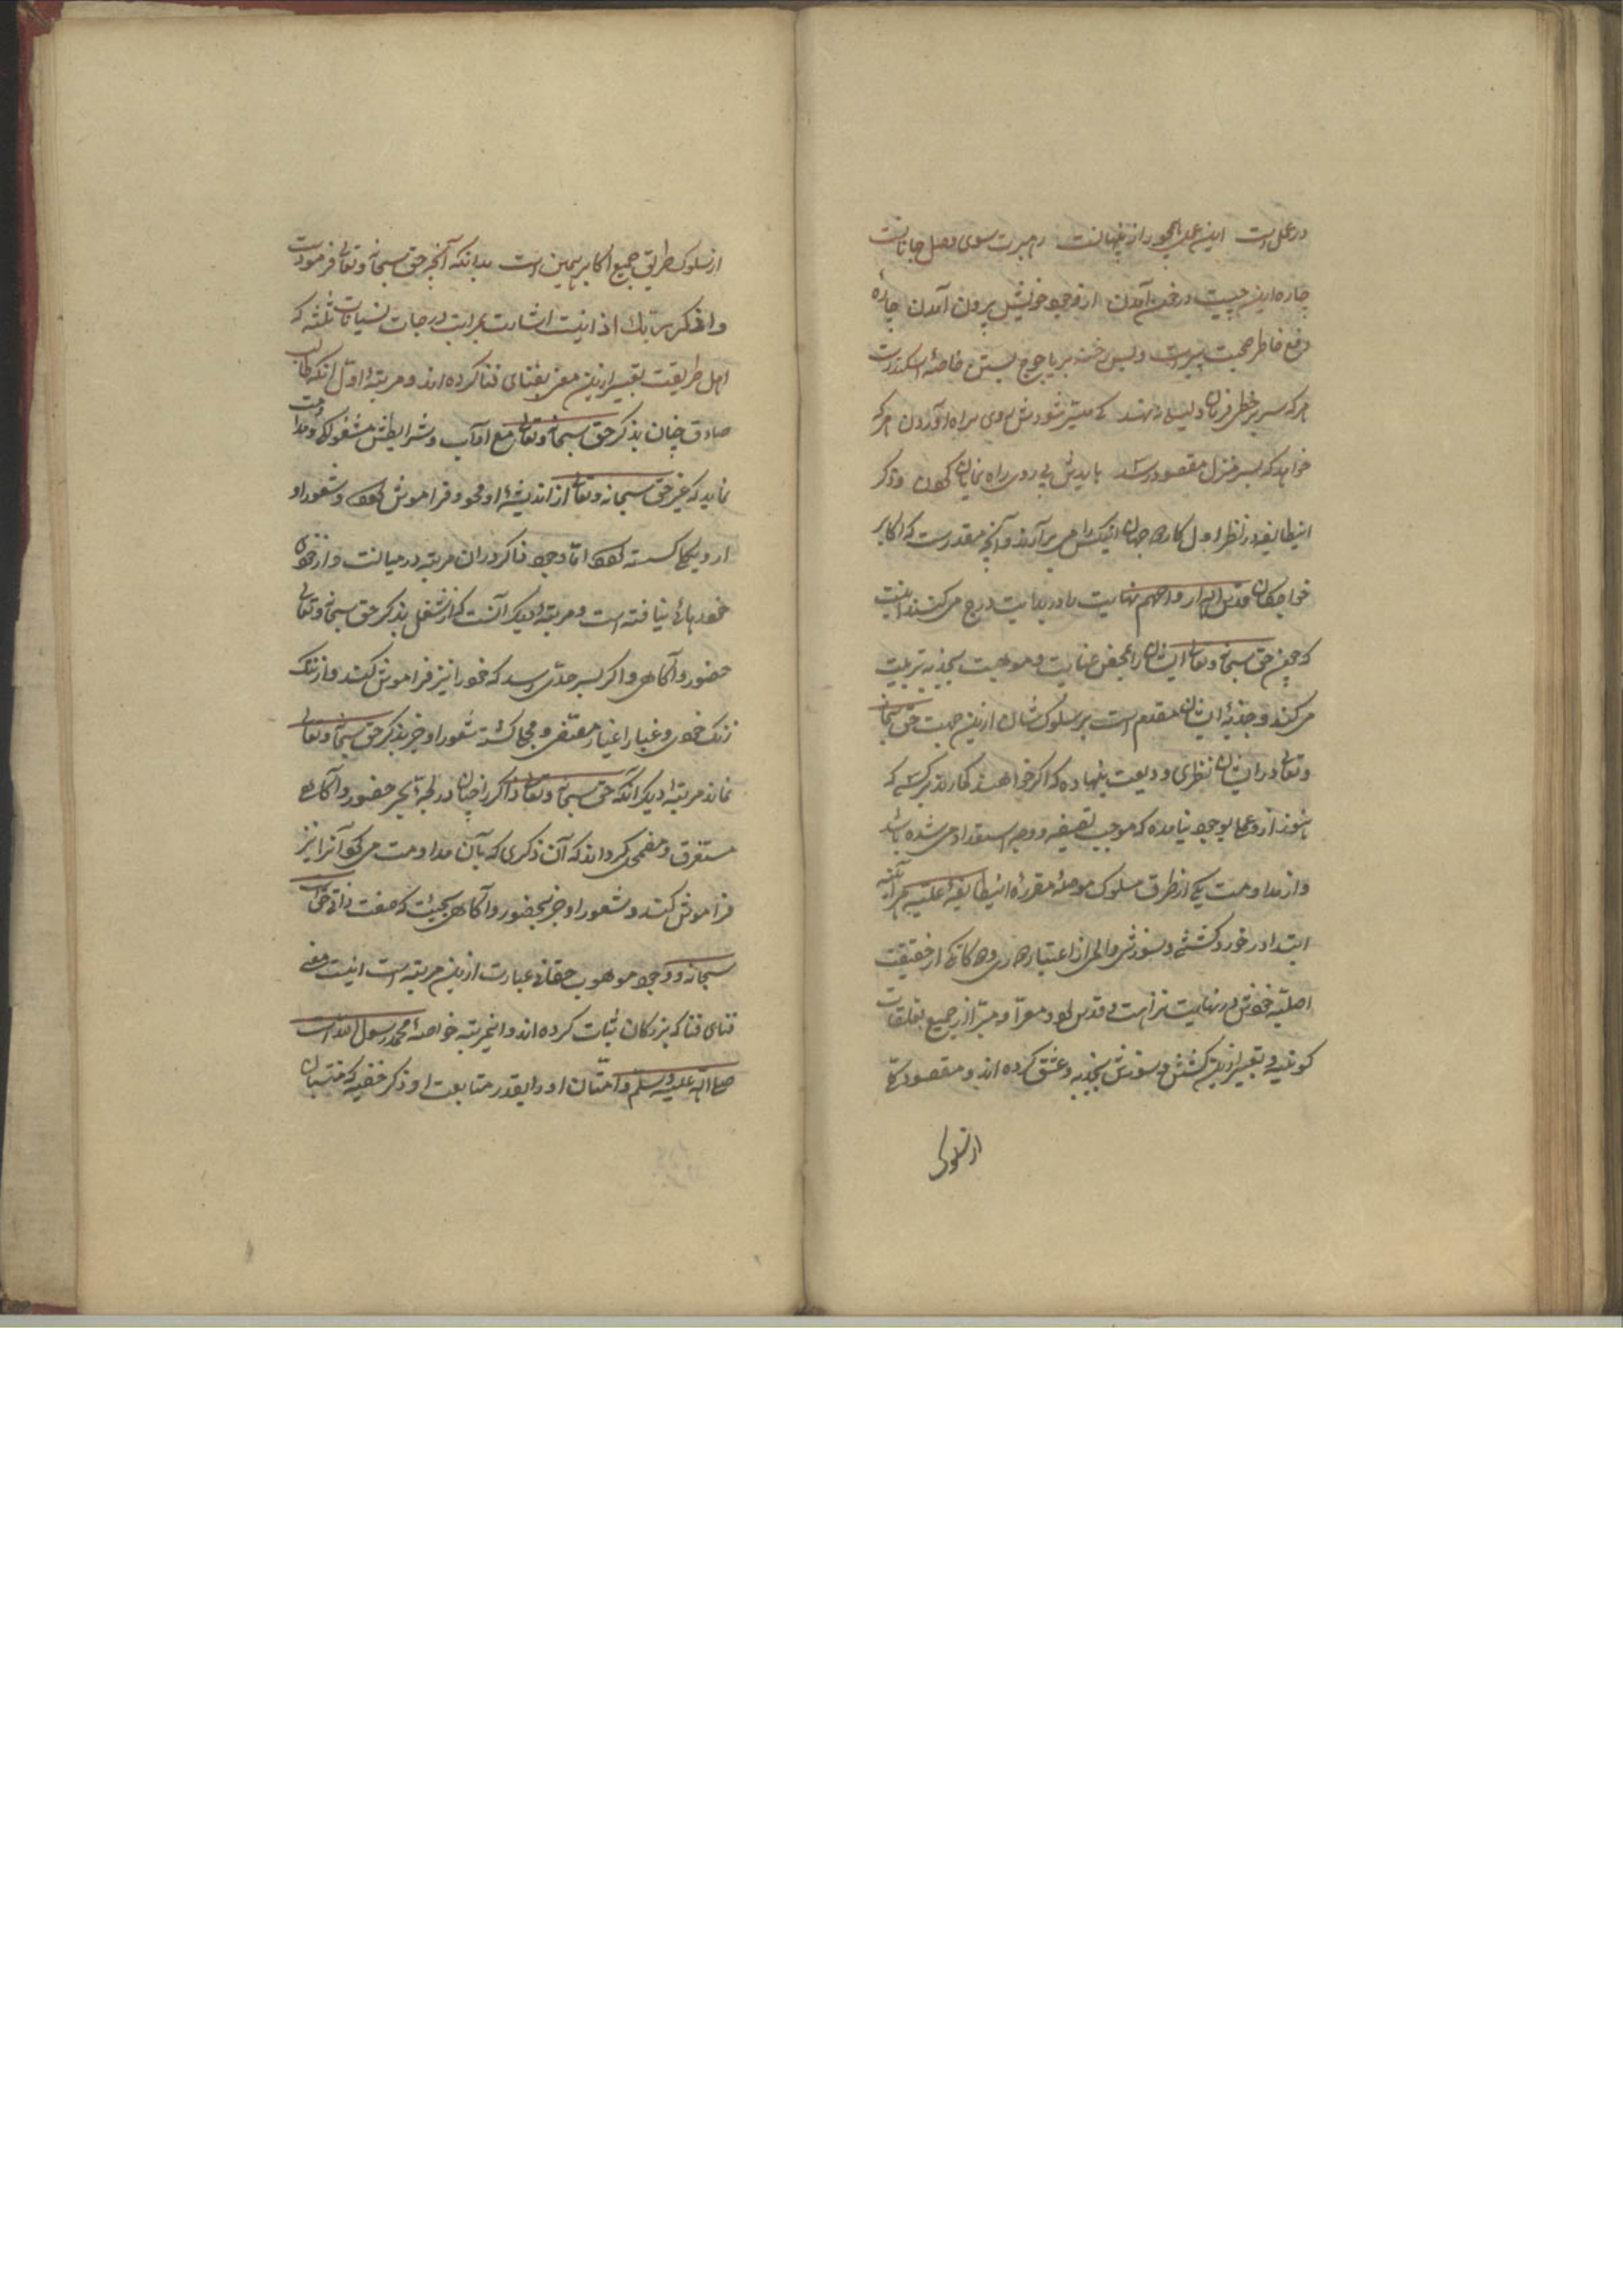 در عمل است این عمل همچو راز پنهانست رهبرت سوی وصل جانانست
چارهٔ این چیست در خود آمدن از وجود خویش بیرون آمدن چارهٔ
دفع خاطر صحبت پیرست و بس رخنه بر یاجوج بستن خاصهٔ اسکندرست
هر که سر بر خط فرمان دلیلی ننهد کی میسر شودش روی براه آوردن هر که
خواهد که بسر منزل مقصود رسد بایدش پی روی راه نمایان کردن و ذکر
اینطایفه در نظر اول کار صد جهان اینکس را می برآرند و آنچه مقررست که اکابر
خواجگان قدس الله ارواحهم نهایت را در بدایت درج می کنند اینست
که چون حق سبحانه و تعالی ایشان را بمحض عنایت و موهبت بجذبه تربیت
می کند و جذبهٔ ایشان مقدم است بر سلوک شان ازین جهت حق سبحانه
و تعالی در ایشان نظری ودیعت بنهاده که اگر خواهند گمارند بر کسی که
هنوز از و عملی بوجود نیامده که موجب تصفیه و وجه استعداد می شده باشد
و از مداومت یکی از طرق مسلوک موصلهٔ مقررهٔ اینطایفهٔ علیه هر آینه
ابتدا در خورد کششی و سوزش و المی از اعتبار
اصلیه خودش در نهایت نزاهت و قدس بود و معرا و مبرا از جمیع تعلقات
کونیه و تعبیر ازین کشش و سوزش بجذبه و عشق کرده اند و مقصود
از سلوک
از سلوک طریق جمیع اکابر همین است بدانکه آنچه حق سبحانه و تعالی فرمودست
واذکر ربک اذا نسیت اشارت بمراتب درجات نسیانات ثلثه که
اهل طریقت تعبیر ازین معنی بفنای فنا کرده اند و مرتبهٔ اول آنکه طالب
صادق چنان بذکر حق سبحانه و تعالی مع آداب و شرایطش مشغولی و مداومت
نماید که غیر حق سبحانه و تعالی از اندیشهٔ او محو و فراموش شود و شعور او
از و یکی کسسته شود اما وجود ذاکر در ان مرتبه در میانست و از خودی
خود رهائی نیافته است و مرتبهٔ دیگر آنست که از شغل بذکر حق سبحانه و تعالی
حضور و آگاهی و اگر بسر حدی رسد که خود را نیز فراموش کند و از ننگ
زنگ خودی و غبار اغیار منتفی و محا گشته شعور او جز بذکر حق سبحانه و تعالی
نماند مرتبهٔ دیگر آنکه حق سبحانه و تعالی ذاکر را چنان در لجهٔ بحر حضور و آگاهی
مستغرق و مضمحل گرداند که آن ذکری که بآن مداومت می کرد آنرا نیز
فراموش کند و شعور او جز بحضور و آگاهی بحیث که صفت ذاتی حق است
سبحانه و وجود موهوب حقانی عبارت ازین مرتبه است اینست معنی
فنای فنا که بزرگان اثبات کرده اند و اینمرتبه خاصهٔ محمد رسول الله است
صلی الله علیه و سلم و امتان او را بقدر متابعت او و ذکر خفیه که منتسبان